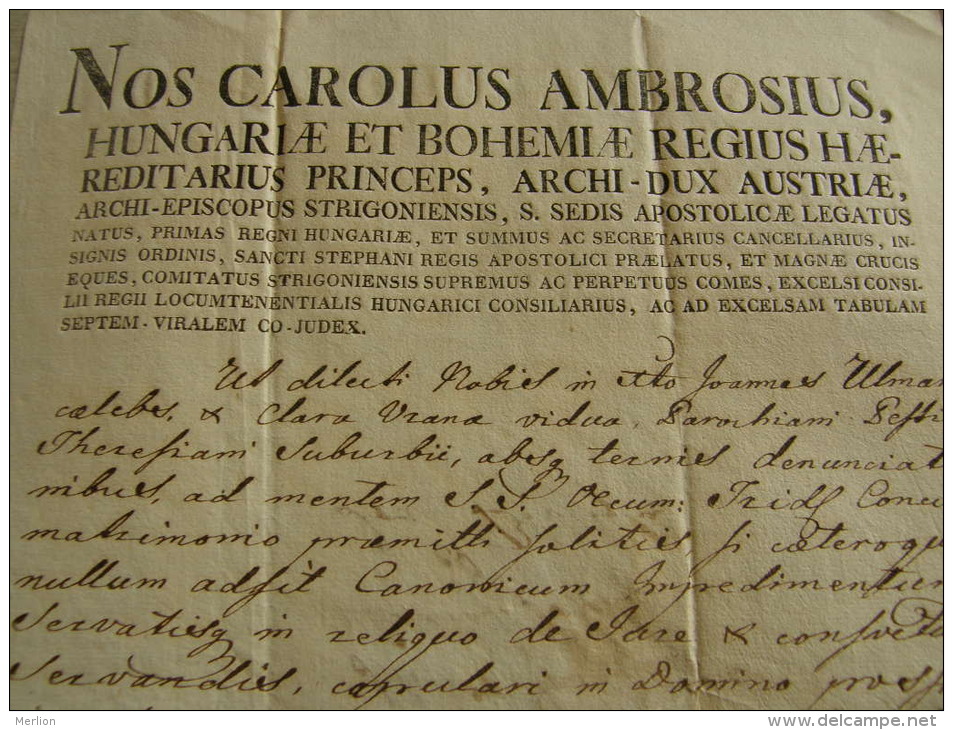 NOS CAROLUS AMBROSIUS,
HUNGARIÆ ET BOHEMIÆ REGIUS HÆ-
REDITARIUS PRINCEPS, ARCHI-DUX AUSTRIÆ,
ARCHI-EPISCOPUS STRIGONIENSIS, S. SEDIS APOSTOLICÆ LEGATUS
NATUS, PRIMAS REGNI HUNGARIÆ, ET SUMMUS AC SECRETARIUS CANCELLARIUS, IN-
SIGNIS ORDINIS, SANCTI STEPHANI REGIS APOSTOLICI PRÆLATUS, ET MAGNÆ CRUCIS
EQUES, COMITATUS STRIGONIENSIS SUPREMUS AC PERPETUUS COMES, EXCELSI CONSI-
LII REGII LOCUMTENENTIALIS HUNGARICI CONSILIARIUS, AC AD EXCELSAM TABULAM
SEPTEM-VIRALEM CO-JUDEX.
Ut dilecti Nobis in Xto Joannes Ulman
cælebs, & Clara Urana vidua, Parochiani Pesti
Theresiani Suburbii, absq ternis denunciat
nibus, ad mentem S. S. Oecum: Trid Conc
matrimonio præmitti solitis, si cæteroqu
nullum adsit Canonicum Impedimentum
Servatisq in reliquo de Jure & consvet
Servandis, copulari in Domino poss
Merlion
http://www.delcampe.net